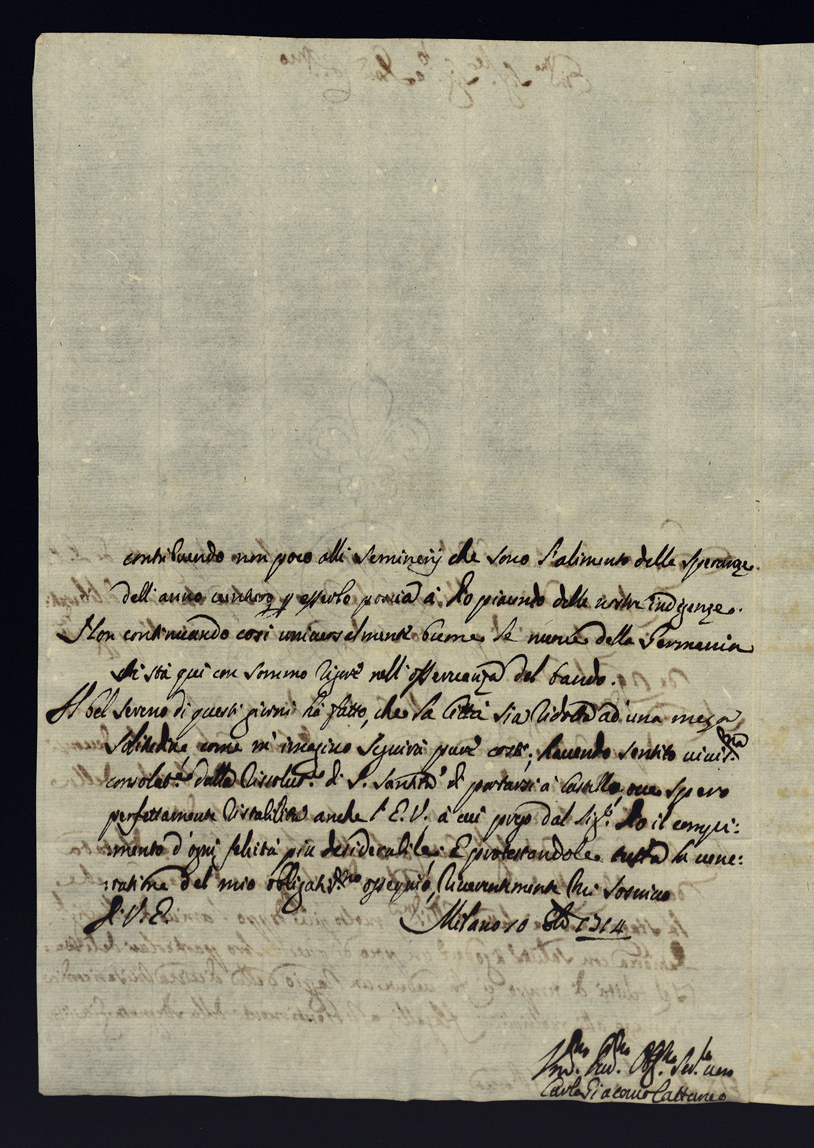 contribuendo non poco alli seminerij che sono l'alimento delle speranze
dell'anno venturo p esserlo poscia à Dio piacendo delle nostre indigenze.
Non continuando così universalmente buone le nuove della Germania
si stà qui con sommo rigore nell'osservanza del bando.
Il bel sereno di questi giorni hà fatto, che la Città sia ridotta ad una meza
solitudine, come m'imagino seguirà pure costì; havendo sentito viviss.ma
consolat.e dalla risolut.e di S. Santità di portarsi à Castello, ove spero
perfettamente ristabilita anche l'E.V. à cui prego dal Sig.r Dio il compi:
:mento d'ogni felicità più desiderabile; E protestandole tutta la vene:
:ratione del mio obligatis.mo ossequio, riverentemente mi soscrivo
D. V. E.
Milano 10 8bre 1714
Um.mo Dev.mo Obl.mo Ser.re vero
Carlo Giacomo Cattaneo